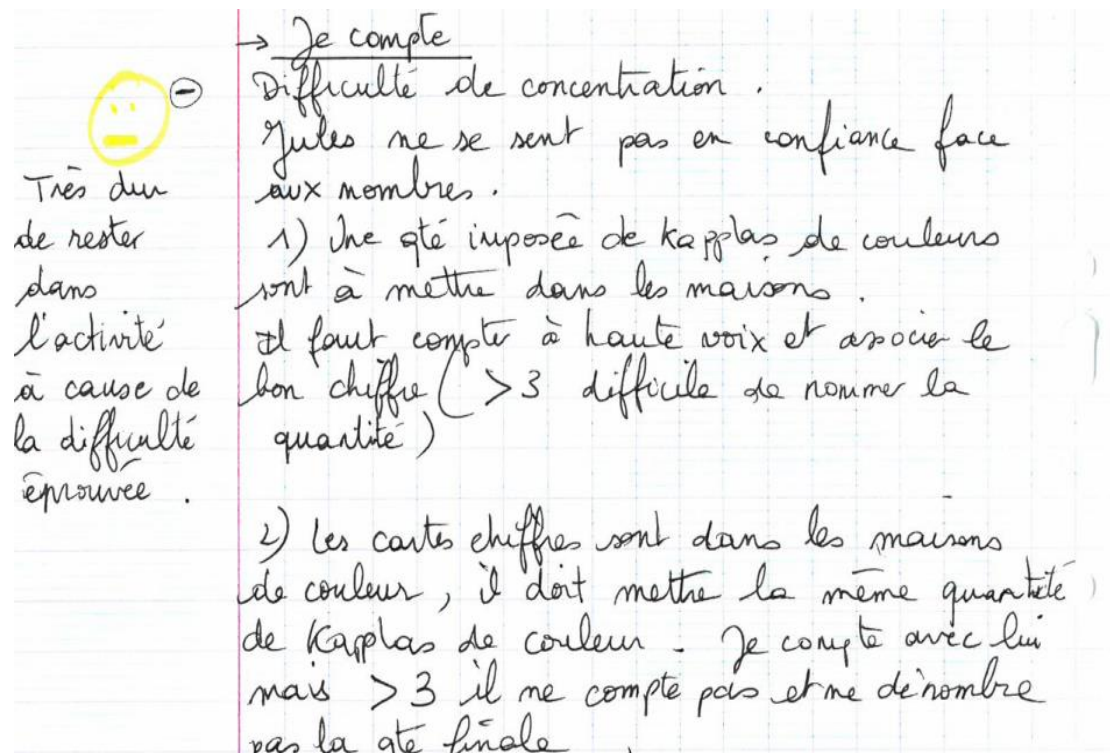 Très dur
de rester
dans
l'activité
à cause de
la difficulté
éprouvée.
→ Je compte
Difficulté de concentration.
Jules ne se sent pas en confiance face
aux nombres.
1) Une qté imposée de Kapplas de couleurs
sont à mettre dans les maisons.
Il faut compter à haute voix et associer le
bon chiffre ( >3 difficile de nommer la
quantité)
2) Les cartes chiffres sont dans les maisons
de couleur, il doit mettre la même quantité
de Kapplas de couleur. Je compte avec lui
mais >3 il ne compte pas et ne dénombre
pas la qté finale.